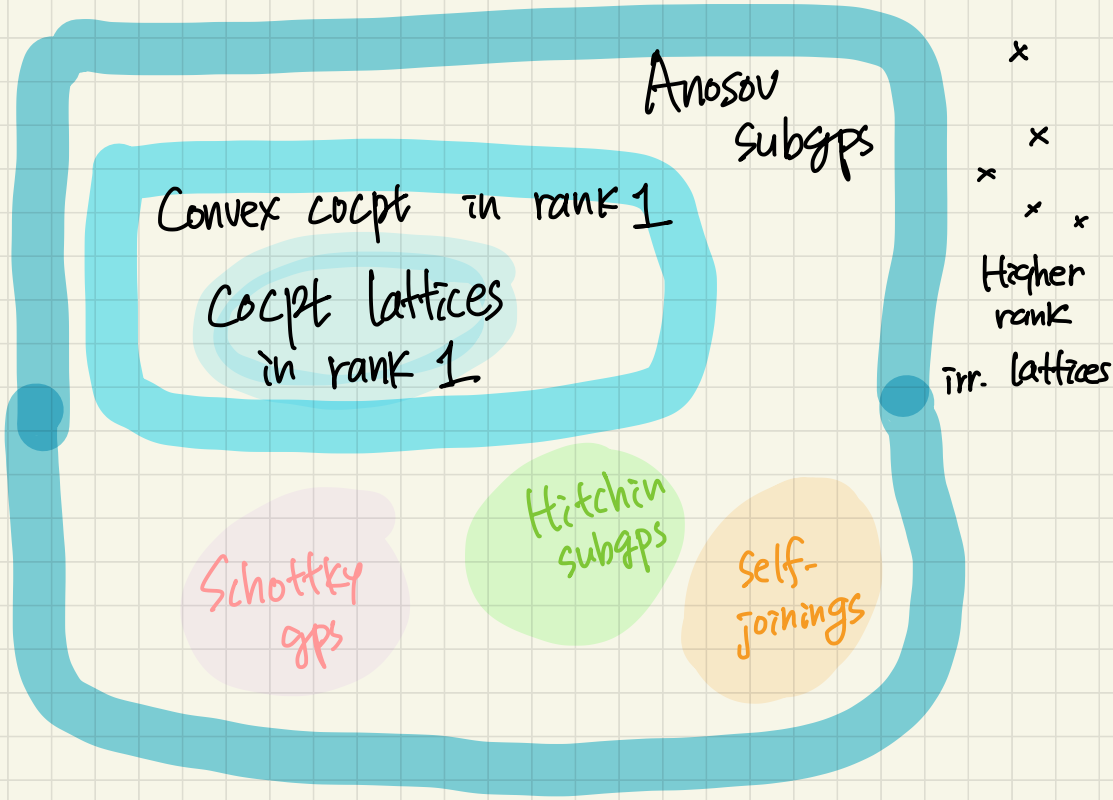 Anosov
subgps
Convex cocpt in rank 1
Cocpt lattices
in rank 1
Higher
rank
irr. lattices
Hitchin
subgps
Schottky
gps
self-
joinings